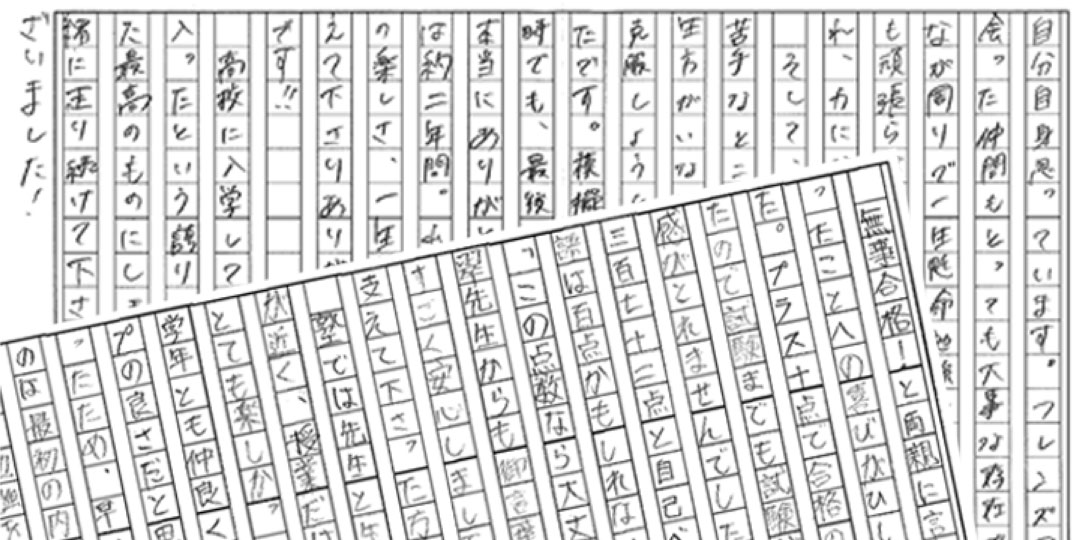 自分自身思っています。フレンズ
会った仲間もとっても大事な存在
なが周りで一生懸命勉
も頑張ら
れ、力に
そして、
苦手なとこ
生方がいな
克服しよう
たです。模擬
時でも、最後
本当にありが
は約二年間。
の楽しさ、一生
えて下さりあり
です!!
高校に入学して
入ったという誇り
た最高のものにし
緒に走り続けて下さ
ざいました!
無事合格!と両親に言
ったことへの喜びがひし
た。プラス十点で合格の
たので試験までも試験
感がとれませんでした
三百七十二点と自己ベ
語は百点かもしれな
っこの点数なら大丈
翠先生からも御言葉
すごく安心しまし
支えて下さった方
塾では先生と生
が近く、授業だけ
とても楽しかっ
学年とも仲良く
プの良さだと思
ったため、早
のは最初の内